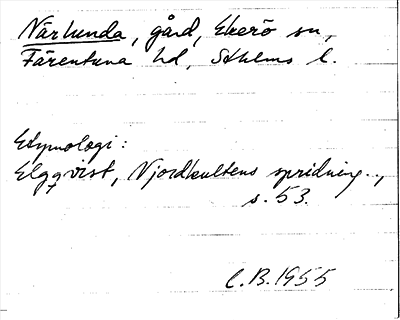 Närlunda, gård, Ekerö sn,
Färentuna hd, Sthlms l.
Etymologi:
Elgqvist, Njordkultens spridning..,
s. 53.
C.B. 1955